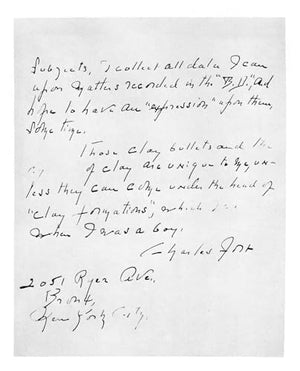 Subjects, I collect all data I can
upon matters recorded in the "B.D.", ad
hope to have an "expression" upon them,
some time.
Those clay bullets and the
of clay are unique to me, un-
less they can come under the head of
"clay formations", which
when I was a boy.
Charles Fort
2051 Ryer Ave.
Bronx,
New York City.